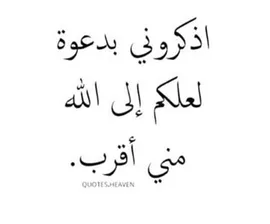 اذكروني بدعوة
لعلكم إلى الله
مني أقرب.
QUOTES.HEAVEN